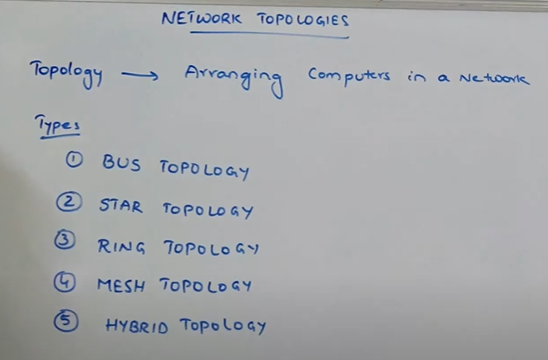 NETWORK TOPOLOGIES
Topology → Arranging Computers in a Network
Types
① BUS TOPOLOGY
② STAR TOPOLOGY
③ RING TOPOLOGY
④ MESH TOPOLOGY
⑤ HYBRID TOPOLOGY